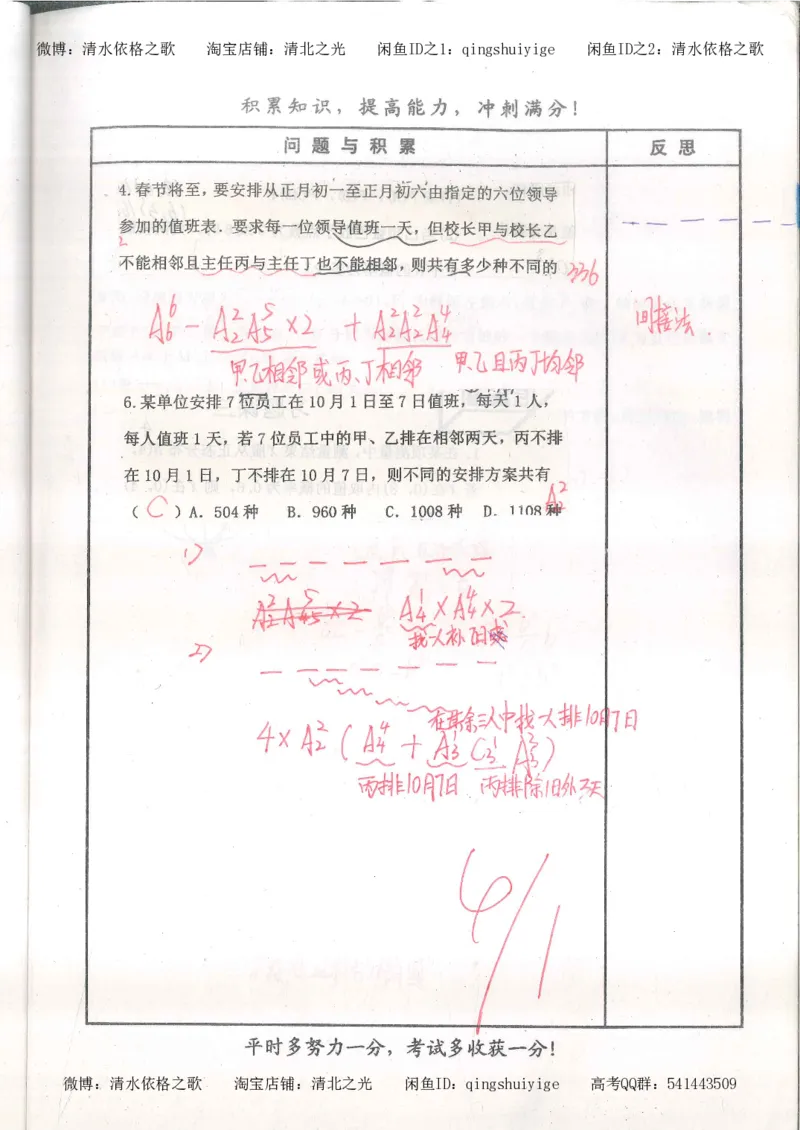 微博：清水依格之歌 淘宝店铺：清北之光 闲鱼ID之1：qingshuiyige 闲鱼ID之2：清水依格之歌
积累知识，提高能力，冲刺满分！
问题与积累 反思
4.春节将至，要安排从正月初一至正月初六由指定的六位领导
参加的值班表．要求每一位领导值班一天，但校长甲与校长乙
不能相邻且主任丙与主任丁也不能相邻，则共有多少种不同的 336
A₆⁶ − A₂²A₅⁵ ×2 + A₂²A₂²A₄⁴ 间接法
甲、乙相邻或丙、丁相邻 甲乙且丙丁均邻
6.某单位安排7位员工在10月1日至7日值班，每天1人，
每人值班1天，若7位员工中的甲、乙排在相邻两天，丙不排
在10月1日，丁不排在10月7日，则不同的安排方案共有
（ C ）A．504种 B．960种 C．1008种 D．1108种
A₂²
1)
A₄¹×A₄⁴×2
2)
在剩余三人中找一人排10月7日
4×A₂²(A₄⁴+A₃¹C₃¹A₃³)
丙排10月7日 丙排除1日外3天
4/1
平时多努力一分，考试多收获一分！
微博：清水依格之歌 淘宝店铺：清北之光 闲鱼ID：qingshuiyige 高考QQ群：541443509